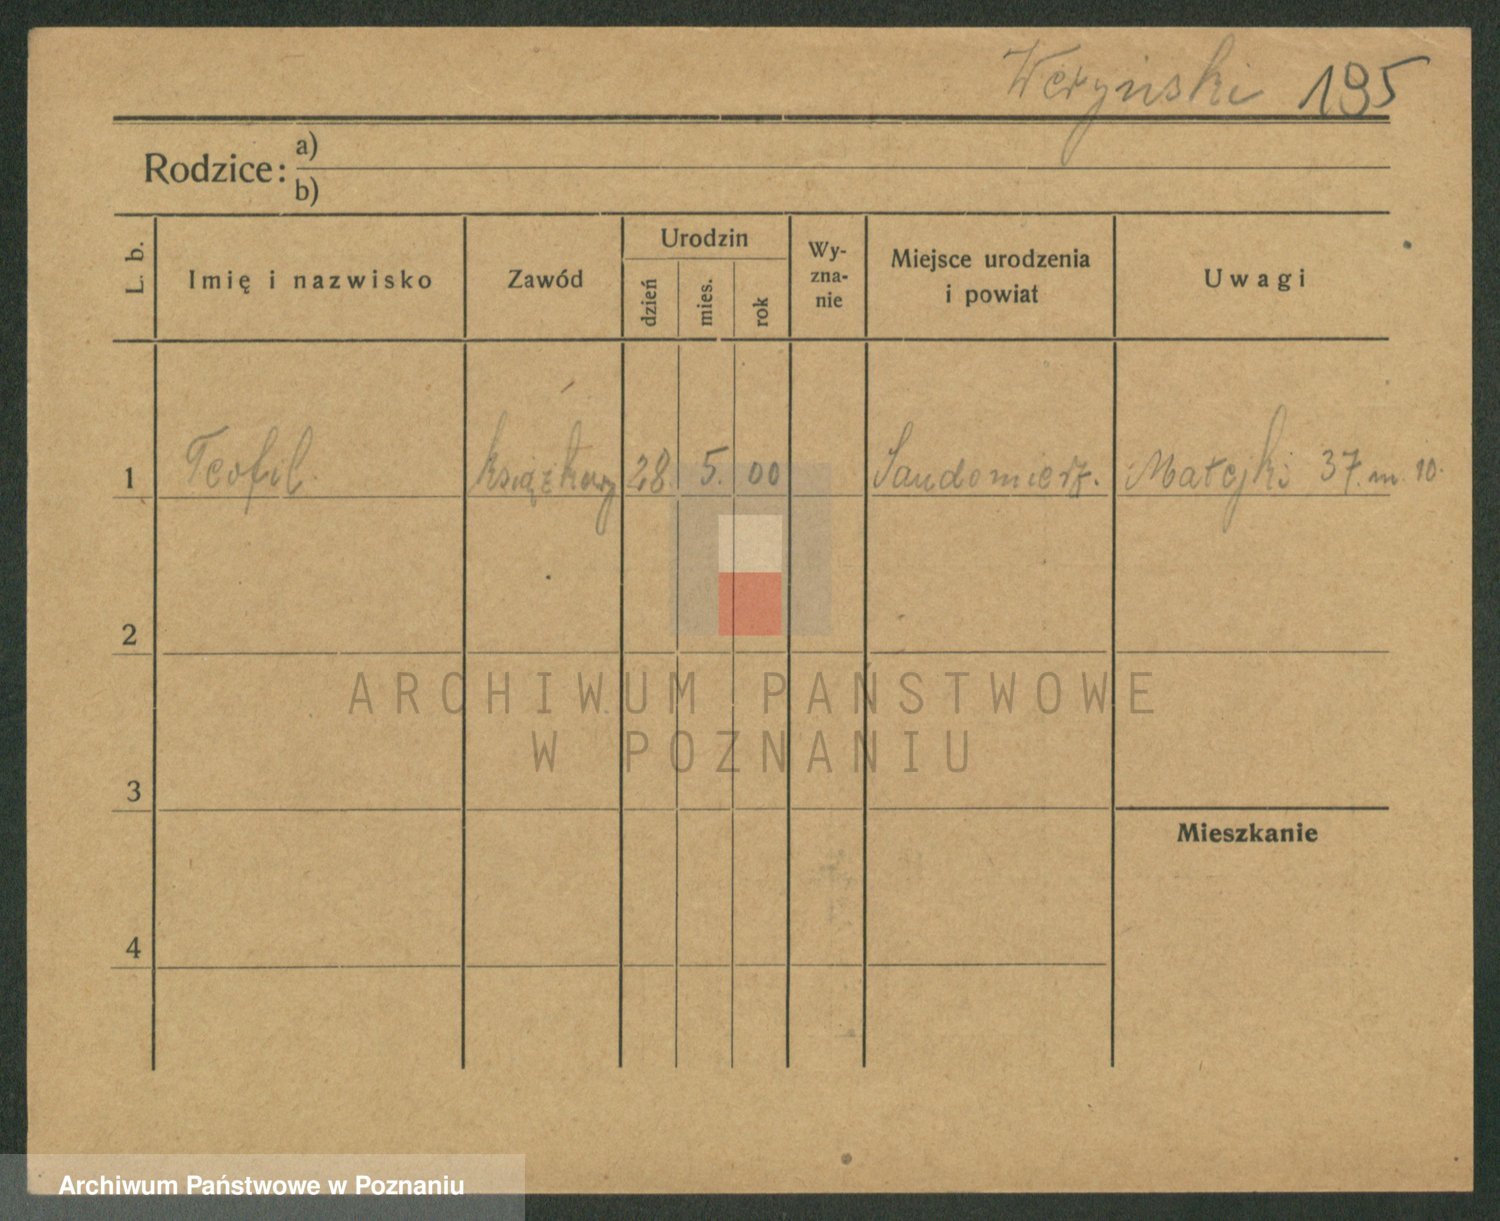 Weryński 195
Rodzice: a)
b)
L. b. Imię i nazwisko Zawód Urodzin dzień mies. rok Wy-zna-nie Miejsce urodzenia i powiat Uwagi
1 Teofil. książkowy 28. 5. 00 Sandomierz. Matejki 37. m. 10.
2
ARCHIWUM PAŃSTWOWE
W POZNANIU
3
Mieszkanie
4
Archiwum Państwowe w Poznaniu